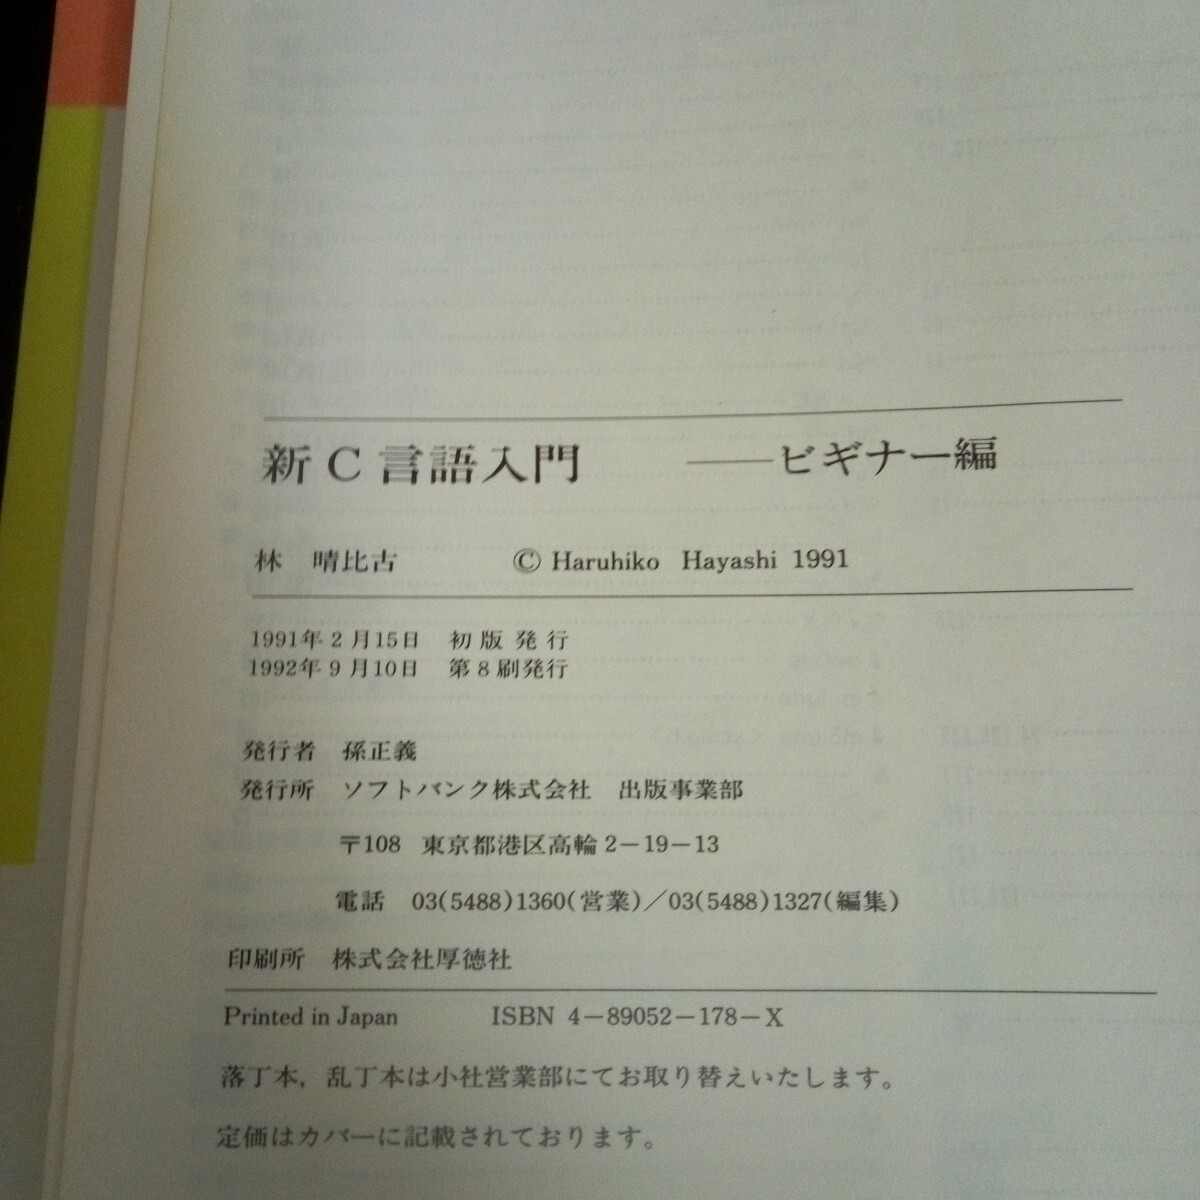 新C言語入門 ——ビギナー編
林 晴比古 © Haruhiko Hayashi 1991
1991年2月15日 初版発行
1992年9月10日 第8刷発行
発行者 孫正義
発行所 ソフトバンク株式会社 出版事業部
〒108 東京都港区高輪2－19－13
電話 03(5488)1360(営業)／03(5488)1327(編集)
印刷所 株式会社厚徳社
Printed in Japan ISBN 4－89052－178－X
落丁本，乱丁本は小社営業部にてお取り替えいたします。
定価はカバーに記載されております。